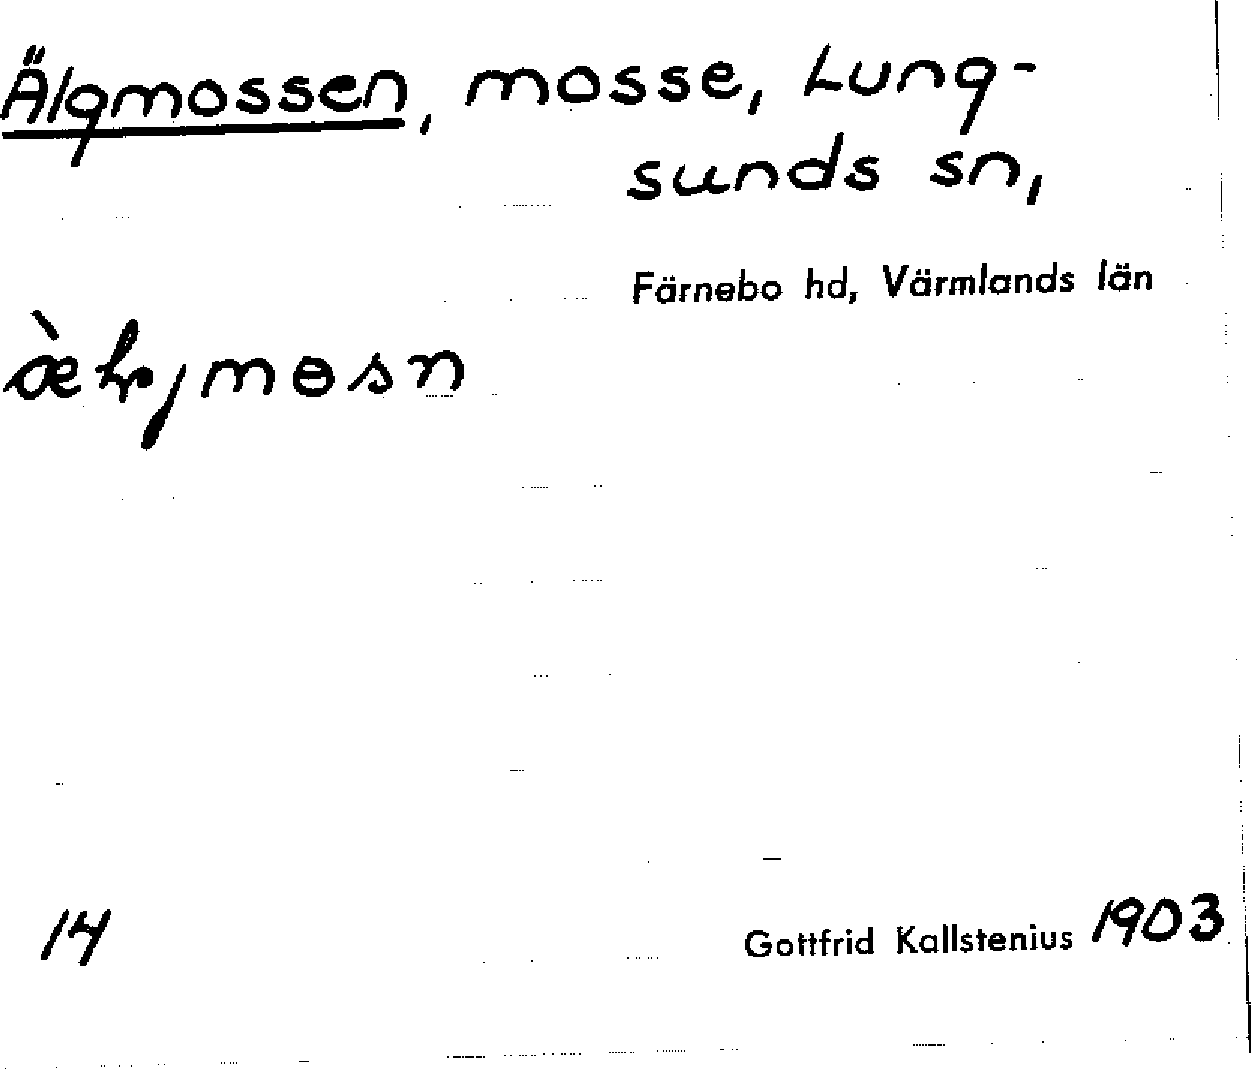 Älgmossen, mosse, Lung-
sunds sn,
Färnebo hd, Värmlands län
14
Gottfrid Kallstenius 1903